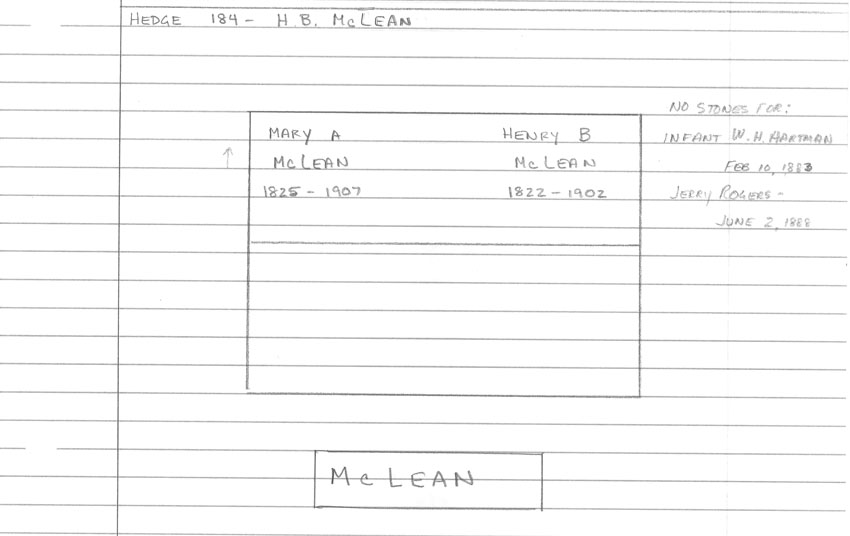 HEDGE 184 - H.B. McLEAN
NO STONES FOR:
MARY A HENRY B INFANT W.H. HARTMAN
McLEAN McLEAN FEB 10, 1883
1825 - 1907 1822 - 1902 JERRY ROGERS -
JUNE 2, 1888
McLEAN